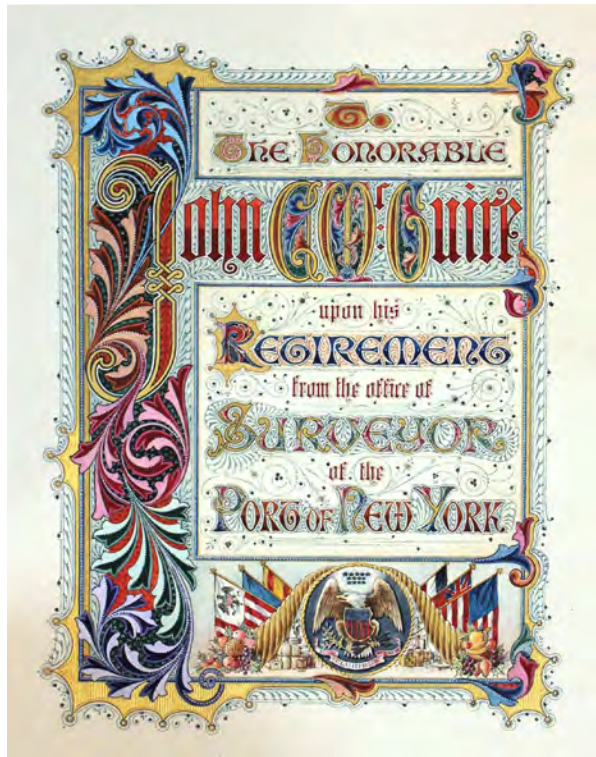 To.
The Honorable
John C Mc: Guire
upon his
Retirement
from the office of
Surveyor
of the
Port of New York.